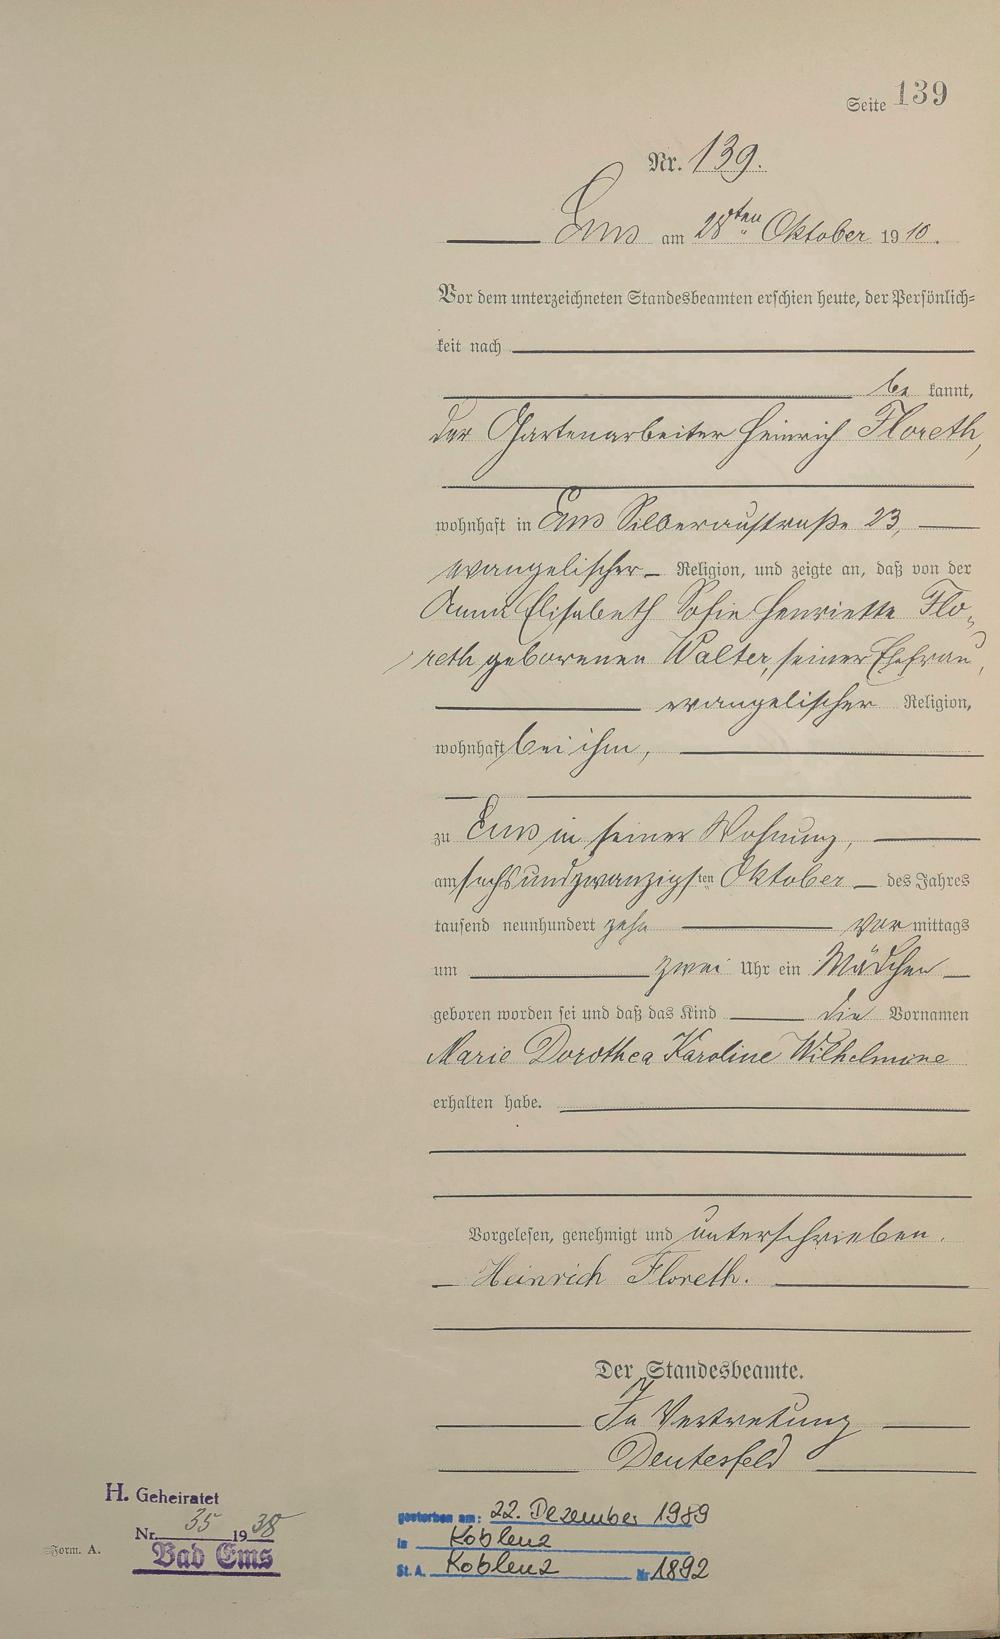 Seite 139
Nr. 139.
Ems am 28ten Oktober 1910.
Vor dem unterzeichneten Standesbeamten erschien heute, der Persönlich=
keit nach
be kannt,
der Gartenarbeiter Heinrich Floreth,
wohnhaft in Ems Silberaustraße 23,
evangelischer Religion, und zeigte an, daß von der
Anna Elisabeth Sofie Henriette Flo-
reth geborenen Walter, seiner Ehefrau,
evangelischer Religion,
wohnhaft bei ihm,
zu Ems in seiner Wohnung,
am sechsundzwanzigsten Oktober des Jahres
tausend neunhundert zehn vormittags
um zwei Uhr ein Mädchen
geboren worden sei und daß das Kind die Vornamen
Marie Dorothea Karoline Wilhelmine
erhalten habe.
Vorgelesen, genehmigt und unterschrieben.
Heinrich Floreth.
Der Standesbeamte.
In Vertretung
Deutesfeld
H. Geheiratet
Nr. 35 1938
Bad Ems
Form. A.
gestorben am: 22. Dezember 1989
in Koblenz
St. A. Koblenz Nr 1892